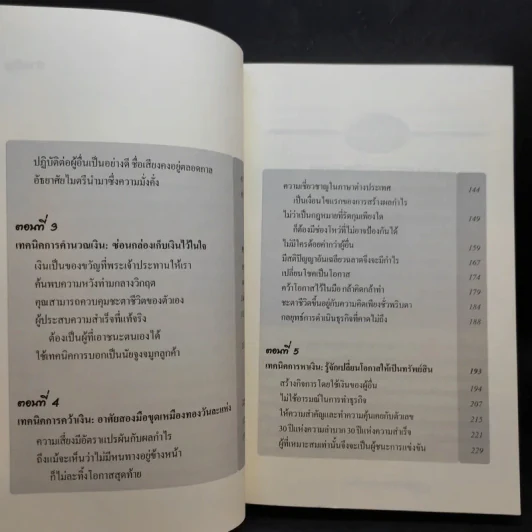 ปฏิบัติต่อผู้อื่นเป็นอย่างดี ชื่อเสียงคงอยู่ตลอดกาล
อัธยาศัยไมตรีนำมาซึ่งความมั่งคั่ง
ตอนที่ 3
เทคนิคการคำนวณเงิน: ซ่อนกล่องเก็บเงินไว้ในใจ
เงินเป็นของขวัญที่พระเจ้าประทานให้เรา
ค้นพบความหวังท่ามกลางวิกฤต
คุณสามารถควบคุมชะตาชีวิตของตัวเอง
ผู้ประสบความสำเร็จที่แท้จริง
ต้องเป็นผู้ที่เอาชนะตนเองได้
ใช้เทคนิคการบอกเป็นนัยจูงจมูกลูกค้า
ตอนที่ 4
เทคนิคการคว้าเงิน: อาศัยสองมือขุดเหมืองทองวันละแท่ง
ความเสี่ยงมีอัตราแปรผันกับผลกำไร
ถึงแม้จะเห็นว่าไม่มีหนทางอยู่ข้างหน้า
ก็ไม่ละทิ้งโอกาสสุดท้าย
ความเชี่ยวชาญในภาษาต่างประเทศ
เป็นเงื่อนไขแรกของการสร้างผลกำไร 144
ไม่ว่าเป็นกฎหมายที่รัดกุมเพียงใด
ก็ต้องมีช่องโหว่ที่ไม่อาจป้องกันได้ 149
ไม่มีใครด้อยค่ากว่าผู้อื่น 159
มีสติปัญญาอันเฉลียวฉลาดจึงจะมีกำไร 167
เปลี่ยนโชคเป็นโอกาส 174
คว้าโอกาสไว้ในมือ กล้าคิดกล้าทำ 179
ชะตาชีวิตขึ้นอยู่กับความคิดเพียงชั่วพริบตา 184
กลยุทธ์การดำเนินธุรกิจที่คาดไม่ถึง 188
ตอนที่ 5
เทคนิคการหาเงิน: รู้จักเปลี่ยนโอกาสให้เป็นทรัพย์สิน 193
สร้างกิจการโดยใช้เงินของผู้อื่น 194
ไม่ใช้อารมณ์ในการทำธุรกิจ 207
ให้ความสำคัญและทำความคุ้นเคยกับตัวเลข 215
30 ปีแห่งความลำบาก 30 ปีแห่งความสำเร็จ 221
ผู้ที่เหมาะสมเท่านั้นจึงจะเป็นผู้ชนะการแข่งขัน 229